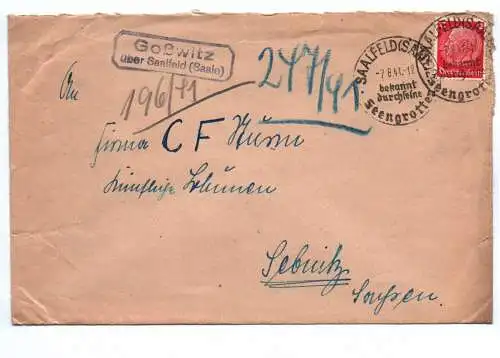 Goßwitz
über Saalfeld (Saale)
196/41
247/41.
SAALFELD (SAALE)
-7.8.41.-12
bekannt
durch seine
Feengrotten
An
Firma C F Sturm
Künstliche Blumen
Sebnitz
Sachsen.